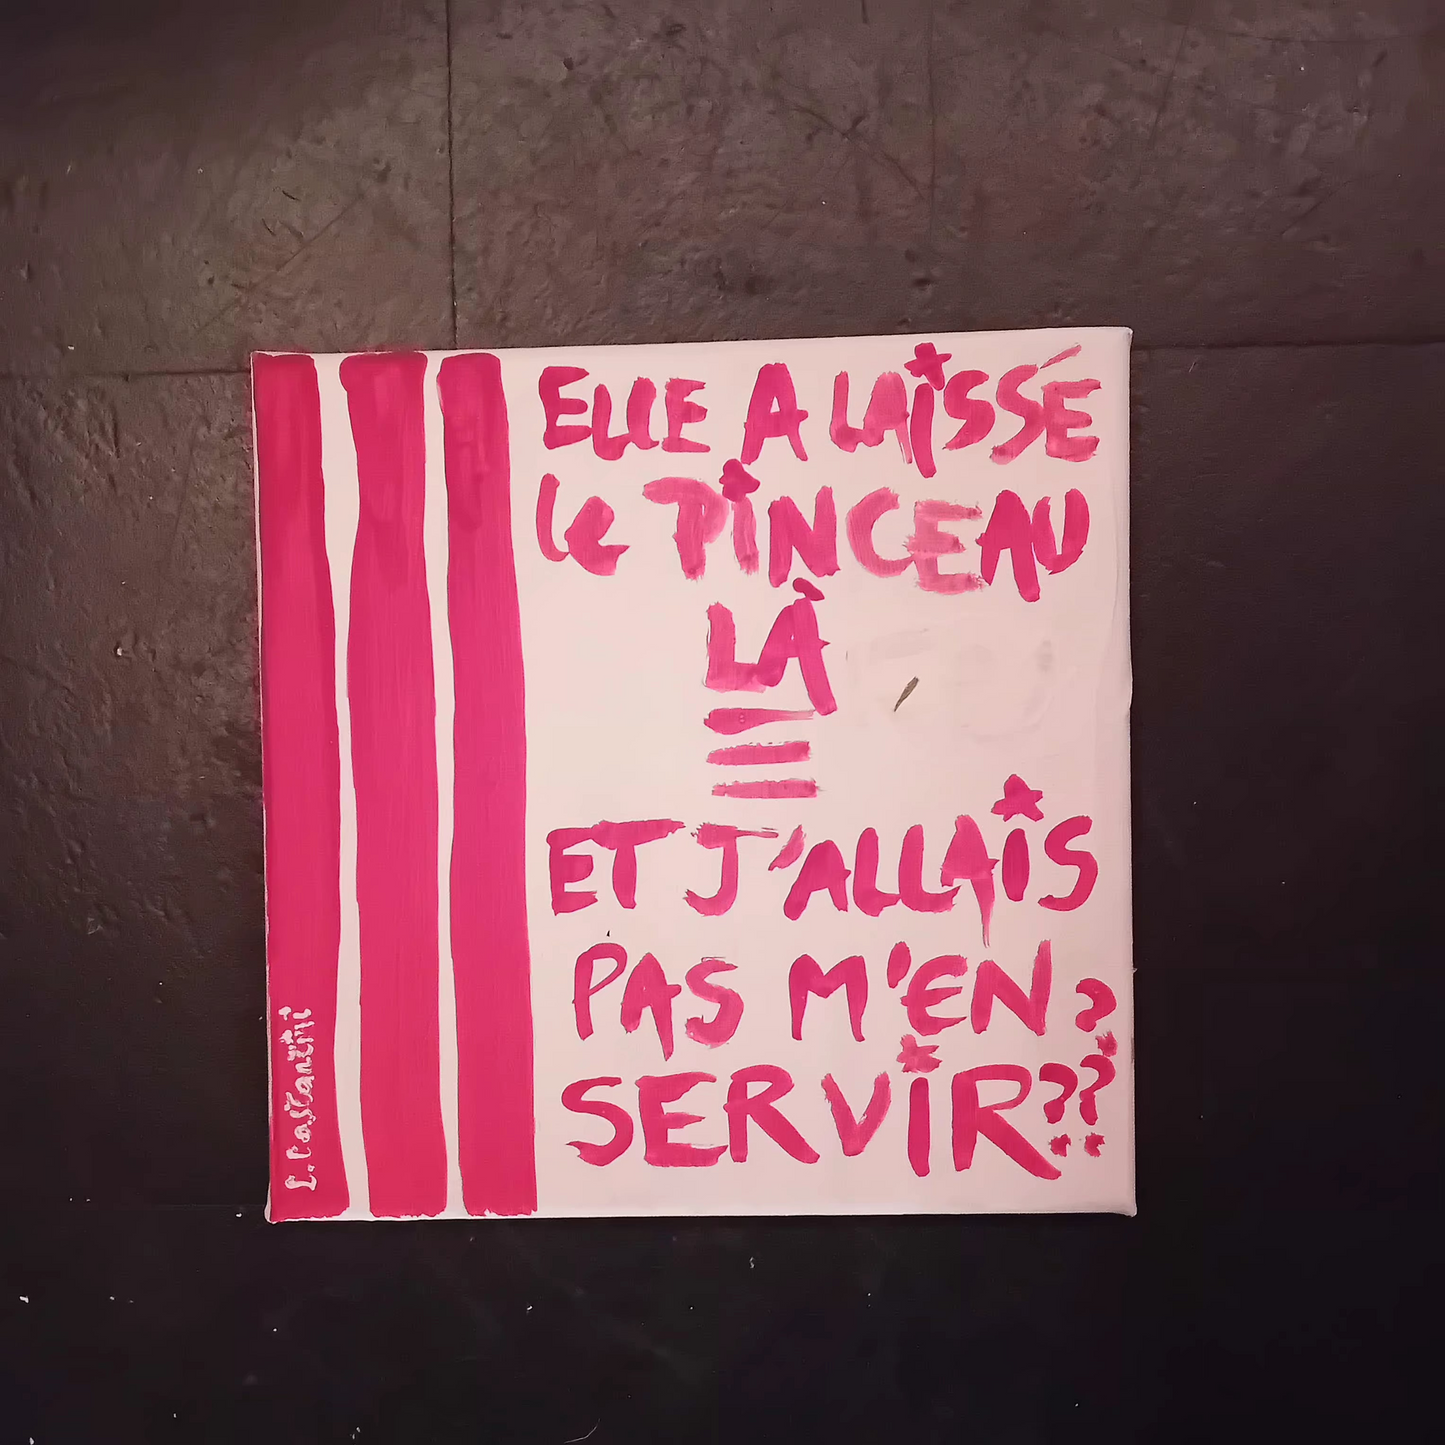 ELLE A LAISSÉ
le PINCEAU
LÀ
ET J'ALLAIS
PAS M'EN
SERVIR ???
L. Costantini